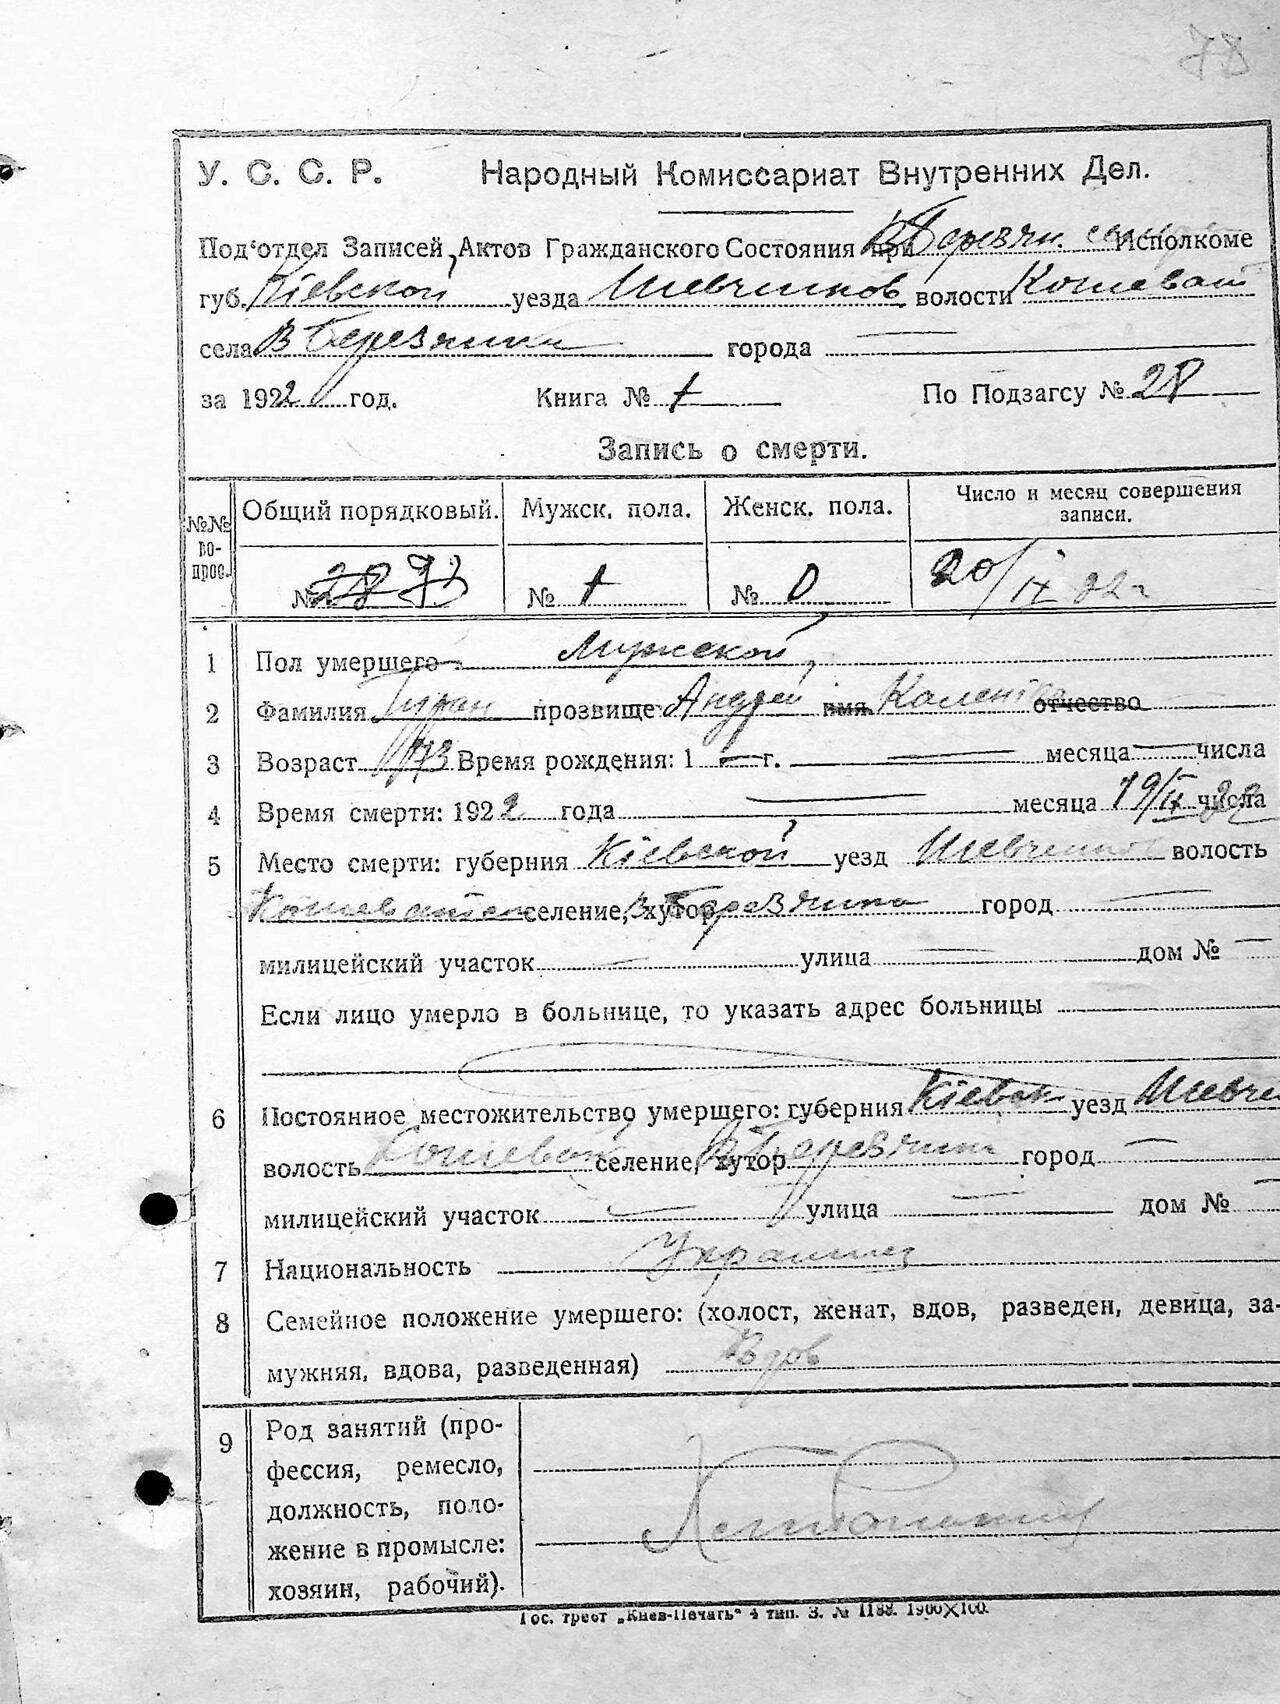 78
У. С. С. Р. Народный Комиссариат Внутренних Дел.
Под'отдел Записей Актов Гражданского Состояния при В Березян. Исполкоме
губ. Кіевской уезда Шевченков волости Кошеват
села В Березянка города
за 1922 год. Книга № 1 По Подзагсу № 28
Запись о смерти.
№№ вопрос. Общий порядковый. Мужск. пола. Женск. пола. Число и месяц совершения записи.
№ 28 № 1 № 0 20/IX 22 г
1 Пол умершего Мужской
2 Фамилия прозвище Андрей имя отчество
3 Возраст 73 Время рождения: 1 г. месяца числа
4 Время смерти: 1922 года месяца 19/IX 22 числа
5 Место смерти: губерния Кіевской уезд Шевченков волость
Кошеватск селение, хутор В Березянка город
милицейский участок улица дом №
Если лицо умерло в больнице, то указать адрес больницы
6 Постоянное местожительство умершего: губерния Кіевск уезд Шевче
волость Кошеват селение, хутор В Березянка город
милицейский участок улица дом №
7 Национальность Украинец
8 Семейное положение умершего: (холост, женат, вдов, разведен, девица, за-
мужняя, вдова, разведенная) Вдов
9 Род занятий (про-
фессия, ремесло,
должность, поло-
жение в промысле:
хозяин, рабочий).
Гос. трест „Киев-Печать“ 4 тип. З. № 1188. 1900×100.